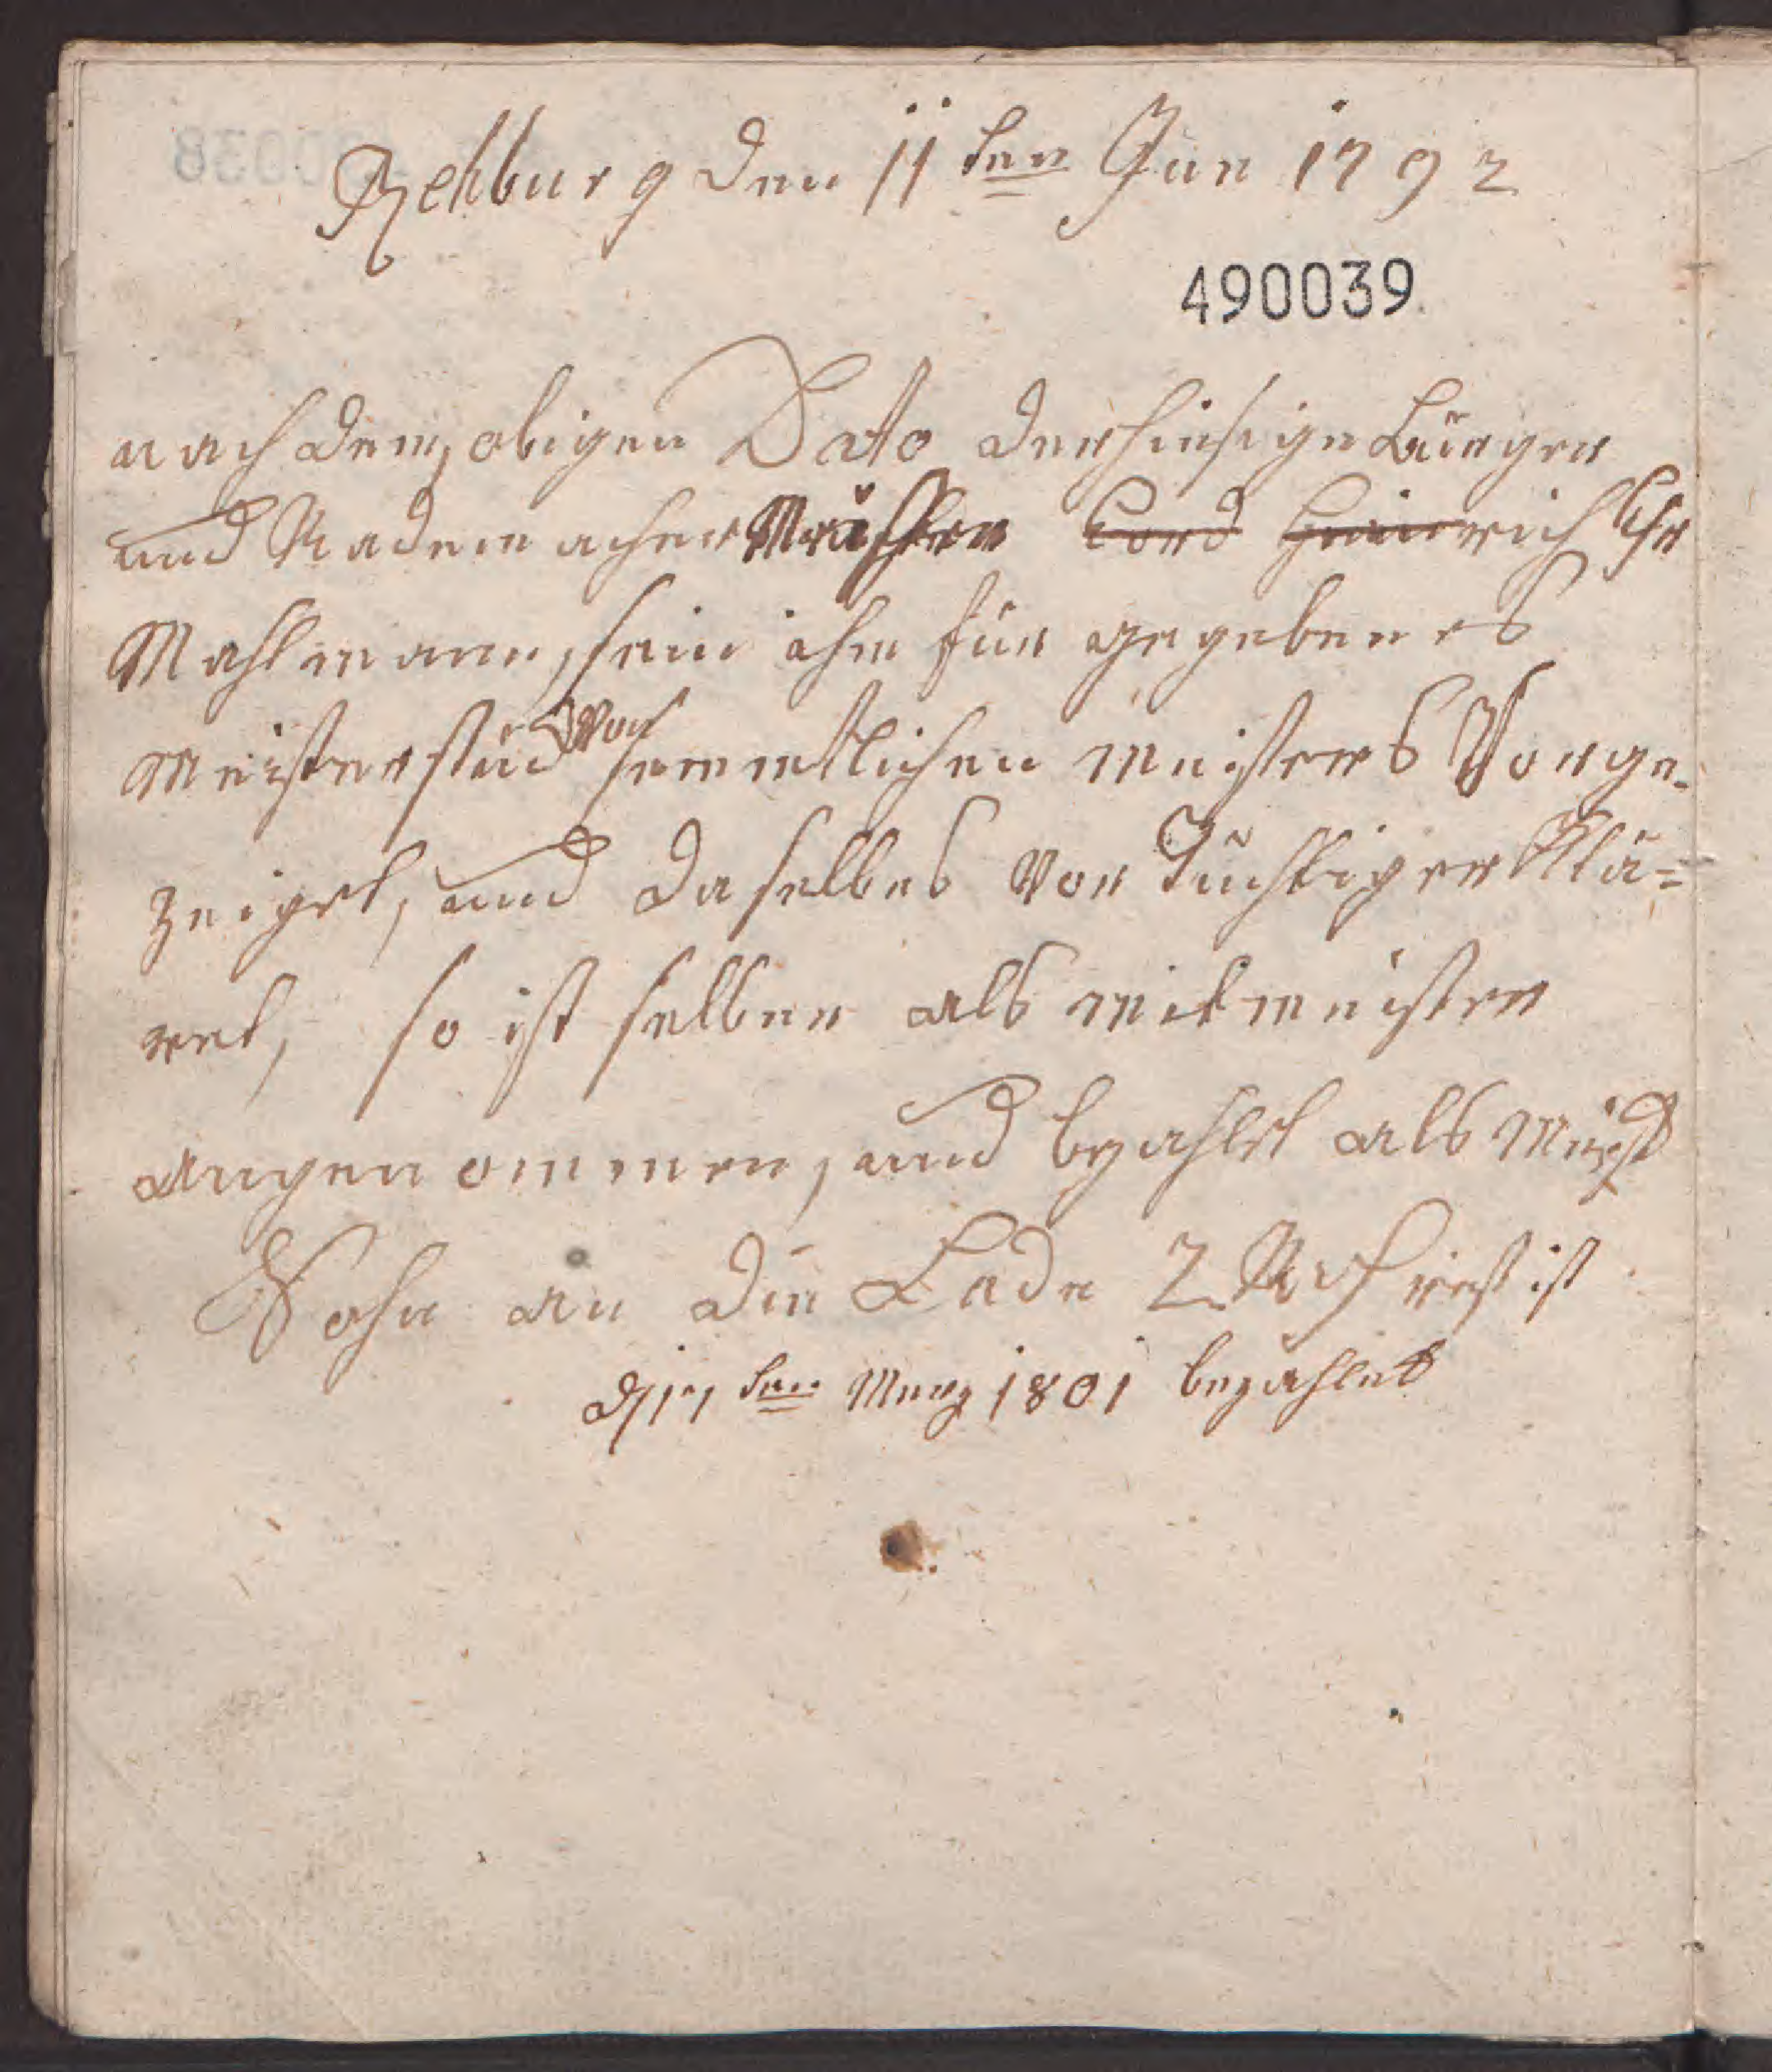 Rehburg den 11 ten Jun 1792
490039
nach dem obigen Dato der hiesige Bürger
und Rademacher Meister Cord Heinrich Chr
Mahlmann, sein ihm für gegebenes
Meisterstück Von semmtlichen meisters Vorge-
zeiget, und daselbes vor Tüchtig er klä=
ret, so ist selber als mitmeister
angenommen, und bezahlt als Meist
Sohn an die Lade 2 rest ist
d 17 ten Merz 1801 bezahlet